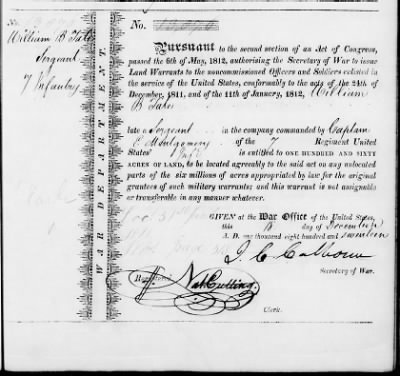 No.
William B Tate
Sergeant
7 Infantry
WAR DEPARTMENT.
No.
Pursuant to the second section of an Act of Congress,
passed the 6th of May, 1812, authorising the Secretary of War to issue
Land Warrants to the noncommissioned Officers and Soldiers enlisted in
the service of the United States, conformably to the acts of the 24th of
December, 1811, and of the 11th of January, 1812, William
B
late a Sergeant in the company commanded by Captain
Montgomery of the 7 Regiment United
States' Inf
is entitled to ONE HUNDRED AND SIXTY
ACRES OF LAND, to be located agreeably to the said act on any unlocated
parts of the six millions of acres appropriated by law for the original
grantees of such military warrants; and this warrant is not assignable
or transferable in any manner whatever.
GIVEN at the War Office of the United States,
this day of November
A. D. one thousand eight hundred and seventeen
J. C. Calhoun
Secretary of War.
Nath Cutting.
Clerk.